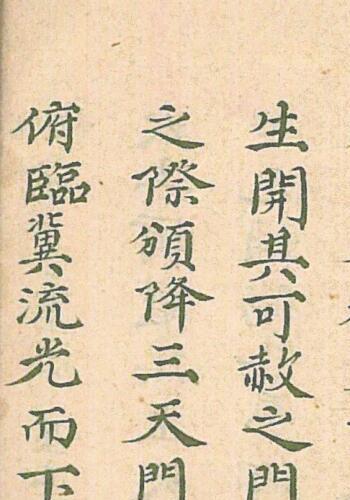 生開其可赦之門
之際頒降三天門
俯臨冀流光而下